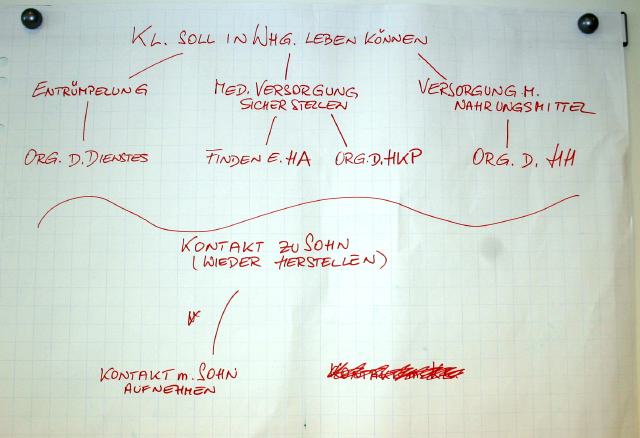 KL. SOLL IN WHG. LEBEN KÖNNEN
ENTRÜMPELUNG
MED. VERSORGUNG
SICHERSTELLEN
VERSORGUNG M.
NAHRUNGSMITTEL
ORG. D. DIENSTES
FINDEN E. HA
ORG. D. HKP
ORG. D. HH
KONTAKT ZU SOHN
(WIEDER HERSTELLEN)
KONTAKT m. SOHN
AUFNEHMEN